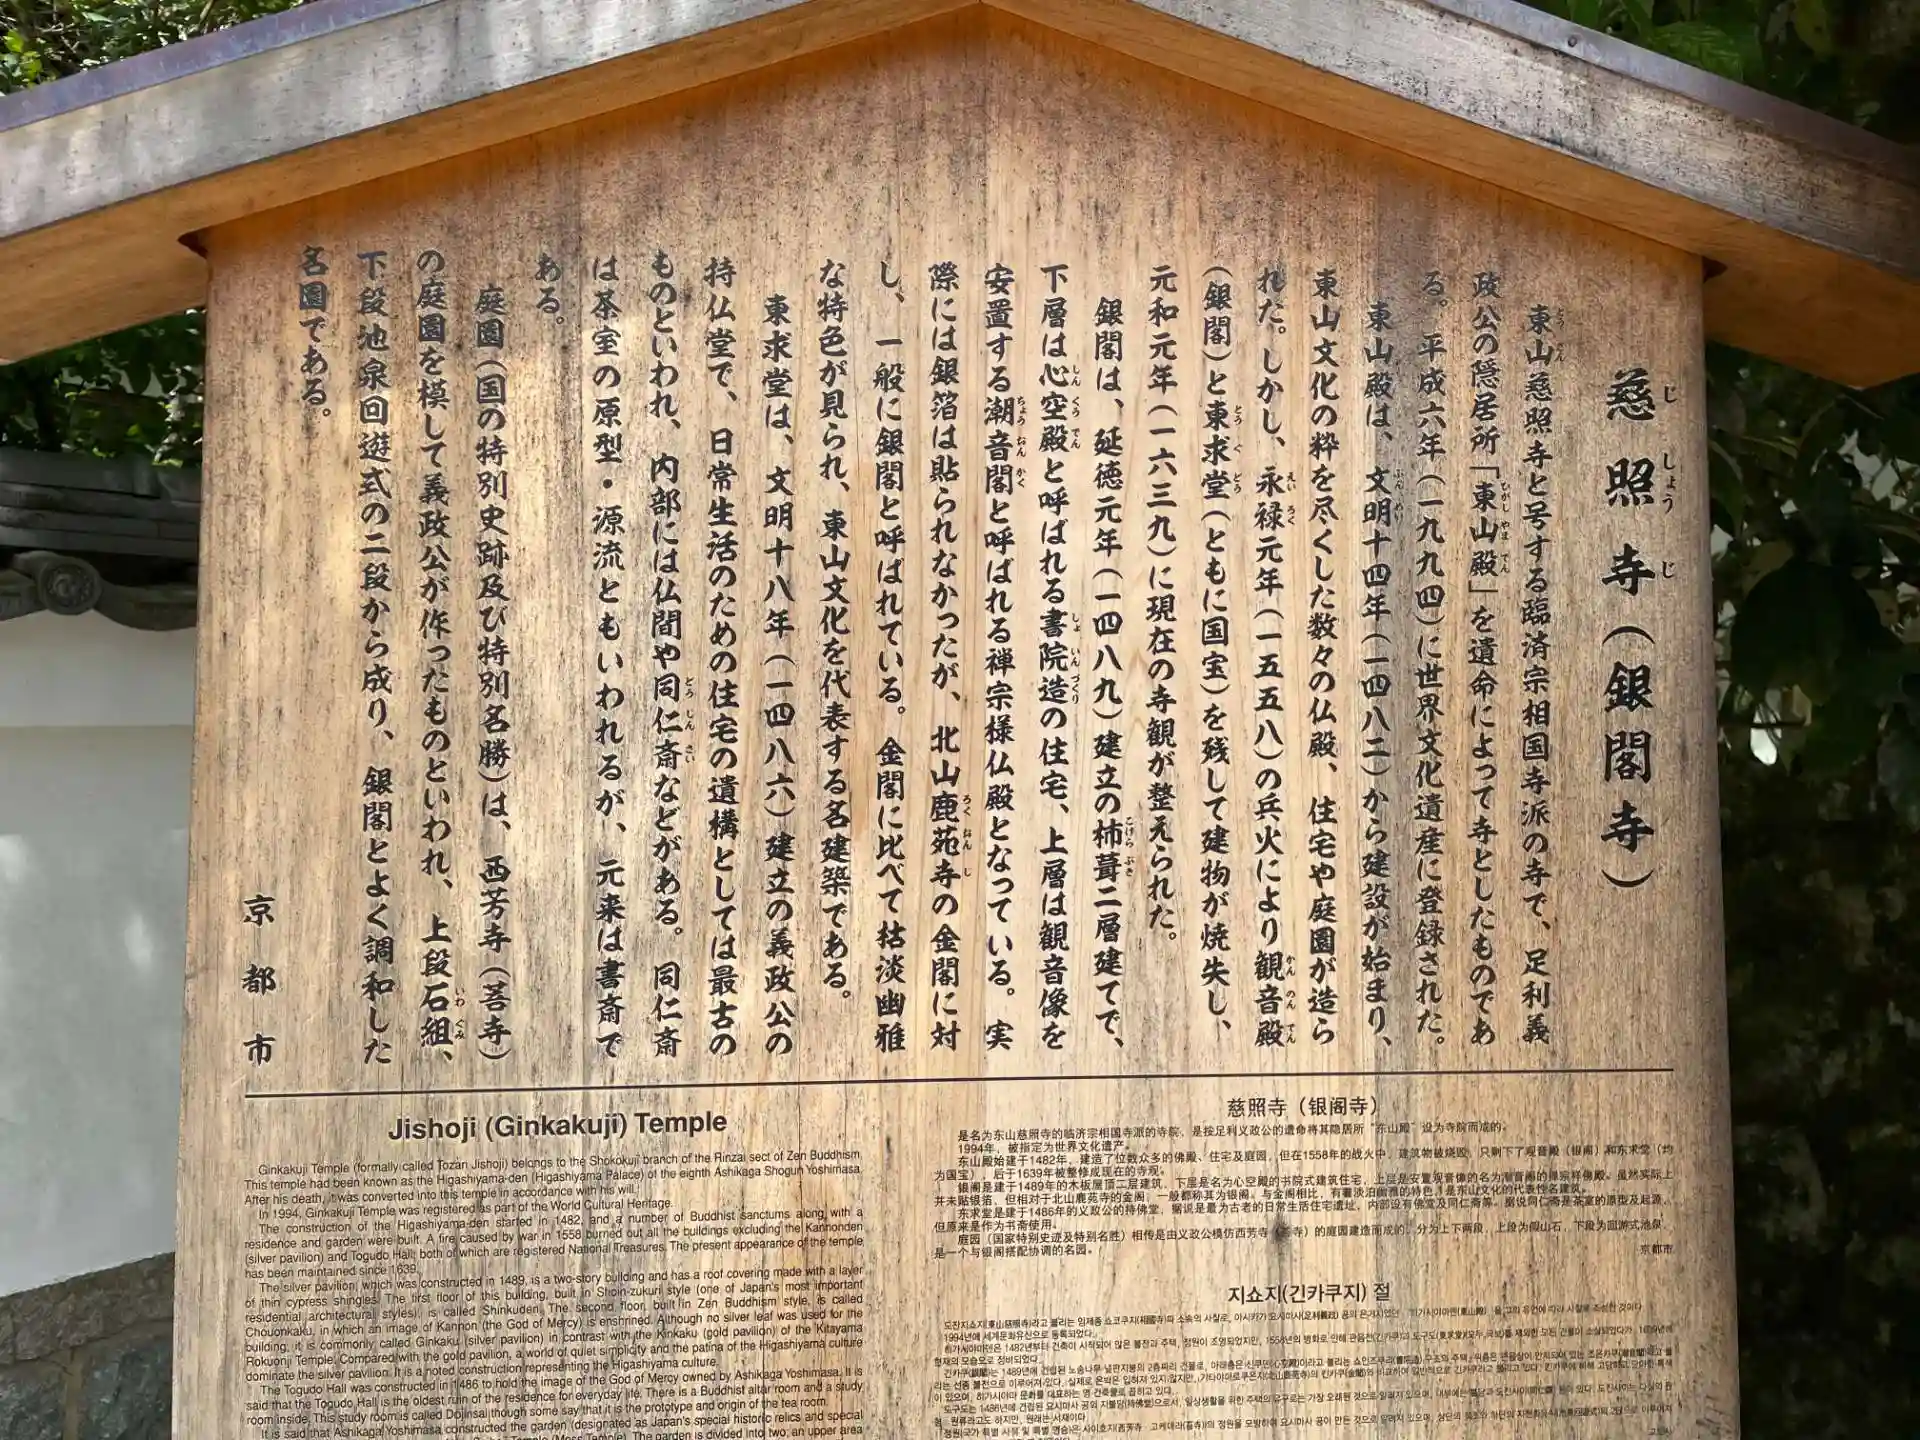 慈照寺（銀閣寺）
東山慈照寺と号する臨済宗相国寺派の寺で、足利義
政公の隠居所「東山殿」を遺命によって寺としたものであ
る。平成六年（一九九四）に世界文化遺産に登録された。
東山殿は、文明十四年（一四八二）から建設が始まり、
東山文化の粋を尽くした数々の仏殿、住宅や庭園が造ら
れた。しかし、永禄元年（一五五八）の兵火により観音殿
（銀閣）と東求堂（ともに国宝）を残して建物が焼失し、
元和元年（一六三九）に現在の寺観が整えられた。
銀閣は、延徳元年（一四八九）建立の杮葺二層建てで、
下層は心空殿と呼ばれる書院造の住宅、上層は観音像を
安置する潮音閣と呼ばれる禅宗様仏殿となっている。実
際には銀箔は貼られなかったが、北山鹿苑寺の金閣に対
し、一般に銀閣と呼ばれている。金閣に比べて枯淡幽雅
な特色が見られ、東山文化を代表する名建築である。
東求堂は、文明十八年（一四八六）建立の義政公の
持仏堂で、日常生活のための住宅の遺構としては最古の
ものといわれ、内部には仏間や同仁斎などがある。同仁斎
は茶室の原型・源流ともいわれるが、元来は書斎で
ある。
庭園（国の特別史跡及び特別名勝）は、西芳寺（苔寺）
の庭園を模して義政公が作ったものといわれ、上段石組、
下段池泉回遊式の二段から成り、銀閣とよく調和した
名園である。
京都市
Jishoji (Ginkakuji) Temple
Ginkakuji Temple (formally called Tozan Jishoji) belongs to the Shokokuji branch of the Rinzai sect of Zen Buddhism.
This temple had been known as the Higashiyama-den (Higashiyama Palace) of the eighth Ashikaga Shogun Yoshimasa.
After his death, it was converted into this temple in accordance with his will.
In 1994, Ginkakuji Temple was registered as part of the World Cultural Heritage.
The construction of the Higashiyama-den started in 1482, and a number of Buddhist sanctums along with a
residence and garden were built. A fire caused by war in 1558 burned out all the buildings excluding the Kannonden
(silver pavilion) and Togudo Hall; both of which are registered National Treasures. The present appearance of the temple
has been maintained since 1639.
The silver pavilion, which was constructed in 1489, is a two-story building and has a roof covering made with a layer
of thin cypress shingles. The first floor of this building, built in Shoin-zukuri style (one of Japan's most important
residential architectural styles), is called Shinkuden. The second floor, built in Zen Buddhism style, is called
Chouonkaku, in which an image of Kannon (the God of Mercy) is enshrined. Although no silver leaf was used for the
building, it is commonly called Ginkaku (silver pavilion) in contrast with the Kinkaku (gold pavilion) of the Kitayama
Rokuonji Temple. Compared with the gold pavilion, a world of quiet simplicity and the patina of the Higashiyama culture
dominate the silver pavilion. It is a noted construction representing the Higashiyama culture.
The Togudo Hall was constructed in 1486 to hold the image of the God of Mercy owned by Ashikaga Yoshimasa. It is
said that the Togudo Hall is the oldest ruin of the residence for everyday life. There is a Buddhist altar room and a study
room inside. This study room is called Dojinsai though some say that it is the prototype and origin of the tea room.
It is said that Ashikaga Yoshimasa constructed the garden (designated as Japan's special historic relics and special
Temple (Moss Temple). The garden is divided into two; an upper area
慈照寺（银阁寺）
是名为东山慈照寺的临济宗相国寺派的寺院，是按足利义政公的遗命将其隐居所“东山殿”设为寺院而成的。
1994年，被指定为世界文化遗产。
东山殿始建于1482年，建造了位数众多的佛殿、住宅及庭园，但在1558年的战火中，建筑物被烧毁，只剩下了观音殿（银阁）和东求堂（均
为国宝），后于1639年被整修成现在的寺观。
银阁是建于1489年的木板屋顶二层建筑，下层是名为心空殿的书院式建筑住宅，上层是安置观音像的名为潮音阁的禅宗样佛殿。虽然实际上
并未贴银箔，但相对于北山鹿苑寺的金阁，一般都称其为银阁。与金阁相比，有着淡泊幽雅的特色，是东山文化的代表性名建筑。
东求堂是建于1486年的义政公的持佛堂，据说是最为古老的日常生活住宅遗址，内部设有佛堂及同仁斋等。据说同仁斋是茶室的原型及起源，
但原来是作为书斋使用。
庭园（国家特别史迹及特别名胜）相传是由义政公模仿西芳寺（苔寺）的庭园建造而成的，分为上下两段，上段为假山石，下段为回游式池泉，
是一个与银阁搭配协调的名园。
京都市
지쇼지(긴카쿠지) 절